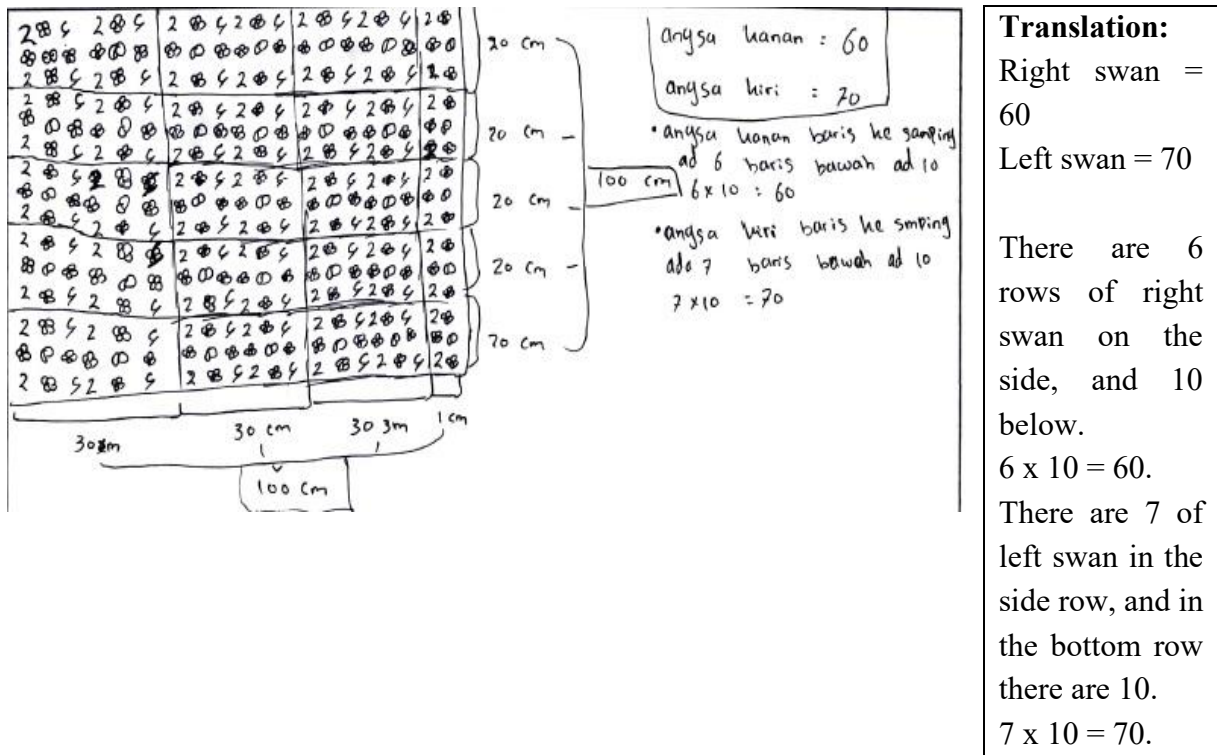 20 cm
20 cm
20 cm
20 cm
20 cm
100 cm
30 cm
30 3m
1 cm
100 cm
angsa kanan : 60
angsa kiri : 70
• angsa kanan baris ke samping
ad 6 baris bawah ad 10
6 x 10 : 60
• angsa kiri baris ke smping
ada 7 baris bawah ad 10
7 x 10 = 70
Translation:
Right swan =
60
Left swan = 70
There are 6
rows of right
swan on the
side, and 10
below.
6 x 10 = 60.
There are 7 of
left swan in the
side row, and in
the bottom row
there are 10.
7 x 10 = 70.